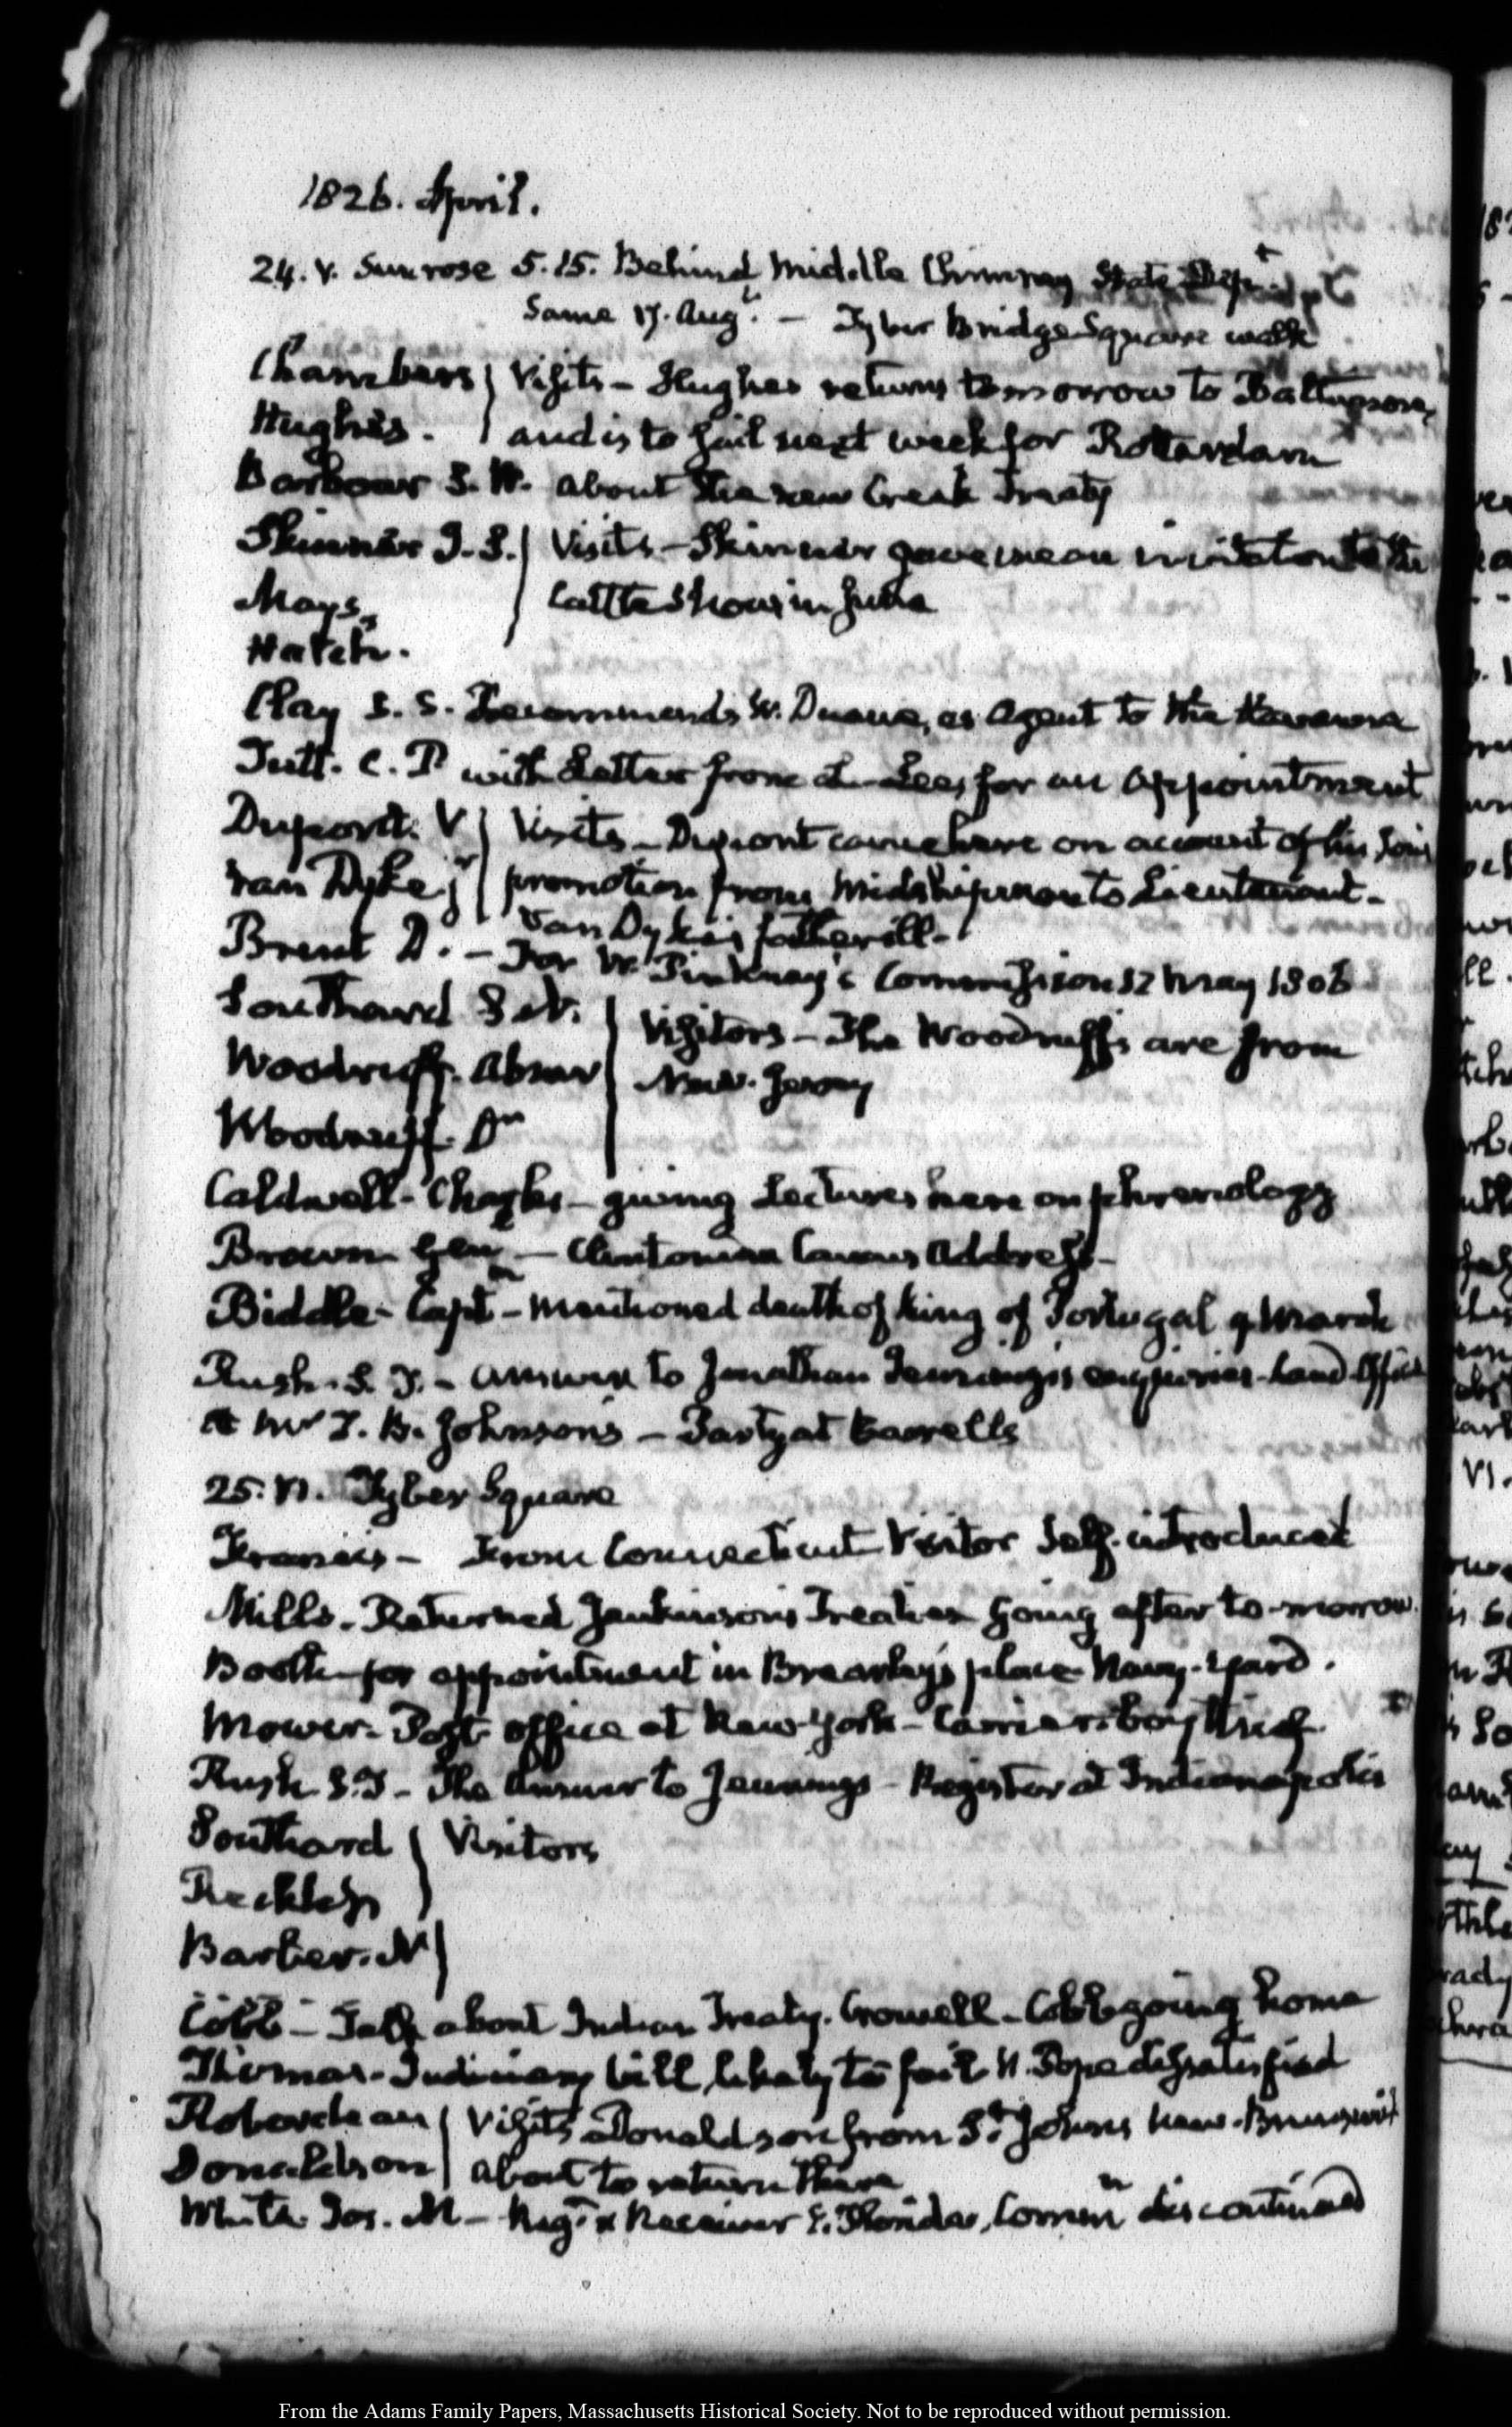 1826. April.
24. V. Sun rose 5.15. Behind Middle Chimney State Dept
Same 17. Augt. — Tyber Bridge Square walk
Chambers } Visits — Hughes returns tomorrow to Baltimore,
Hughes. } and is to sail next week for Rotterdam
Barbour S. W. about the new Creek Treaty
Skinner J. S. } Visits — Skinner gave me an invitation to the
Mays, } Cattle Show in June
Hatch.
Clay S. S. Recommends W. Duane, as Agent to the Havanna
Tutt. C. P with Letter from L. Lee, for an appointment
Dupont. V } Visits — Dupont came here on account of his Son's
Van Dyke jr } promotion from Midshipman to Lieutenant.
Van Dyke's father ill.
Brent D. — For W. Pinkney's Commission 12 May 1806
Southard S. N. } Visitors — The Woodruffs are from
Woodruff. Abner } New. Jersey
Woodruff. Dr
Caldwell. Charles — giving Lectures here on phrenology
Brown Genl — Clintonian Caucus Address.
Biddle — Captn — mentioned death of King of Portugal 9 March
Rush. S. T. — answer to Jonathan Jennings's enquiries Land Office
at Mr T. B. Johnson's — Party at Correll's
25. VI. Tyber Square
Francis — From Connecticut Visitor Self-introduced
Mills. Returned Jenkinson's Treaties going after to-morrow.
Booth — for appointment in Brearley's place Navy-Yard.
Mower. Post office at New-York — Carrier boy
Rush S. T — The Answer to Jennings — Register at Indianapolis
Southard } Visitors
Reckless }
Barber. N }
Cobb — Talk about Indian Treaty. Crowell — Cobb going home
Thomas. Judiciary bill likely to fail N. Pope dissatisfied
Roberdeau } Visits Donaldson from St. Johns New-Brunswick
Donaldson } about to return there
White Jos. M — Regr & Receiver E. Florida, Commn discontinued
From the Adams Family Papers, Massachusetts Historical Society. Not to be reproduced without permission.